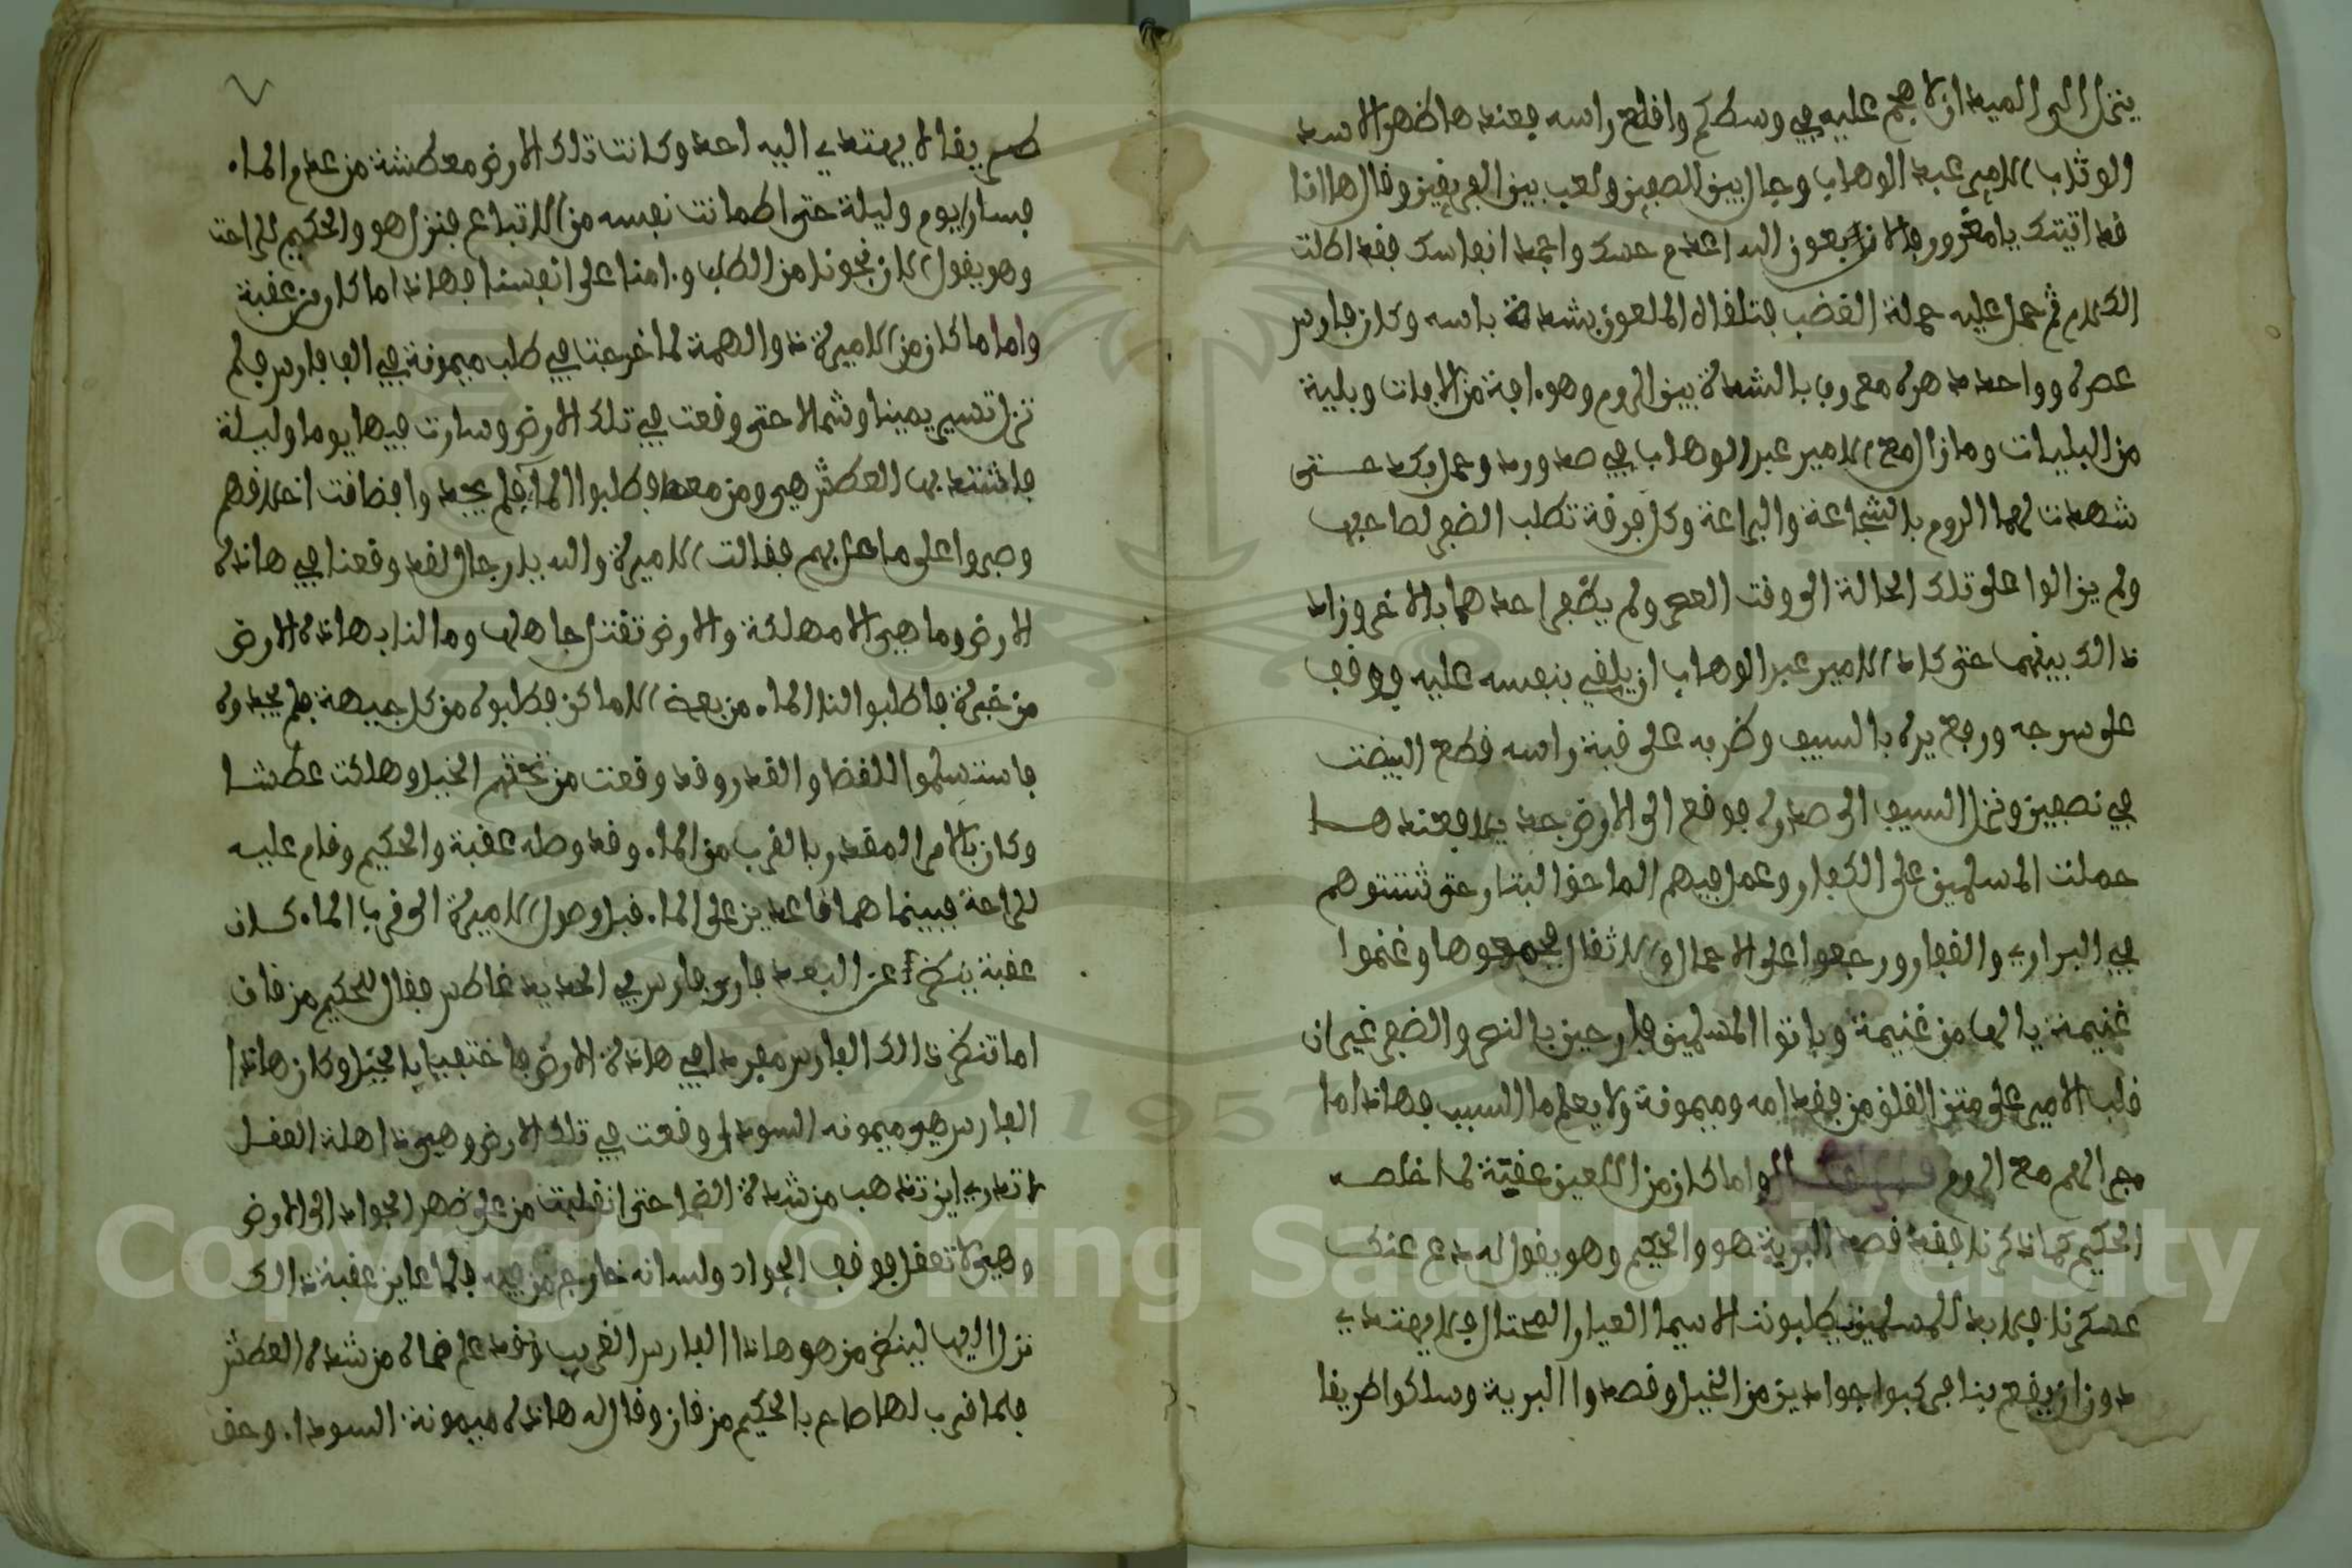 ينزل الى الميدان لا هجم عليه في وسطكم واقلع راسه فعندها ظهر الاسد
الوثاب الامير عبد الوهاب وجال بين الصفين ولعب بين الفريقين وقال ها انا
قد اتيتك يا مغرور يا قرنان بعون الله اعدم حسك واخمد انفاسك فقد اكثرت
الكلام ثم حمل عليه حملة الغضب فتلقاه الملعون بشدة باسه وكان فارس
عصره وواحد دهره معروف بالشدة بين الروم وهو ءافة من الافات وبلية
من البليات ومازال مع الامير عبد الوهاب في صد ورد وعراك حتى
شهدت لهما الروم بالشجاعة والبراعة وكل فرقة تطلب الضفر لصاحبها
ولم يزالوا على تلك الحالة الى وقت العصر ولم يظفر احدهما بالاخر وزاد
ذالك بينهما حتى كاد الامير عبد الوهاب ان يلقي بنفسه عليه ووقف
على سرجه ورفع يده بالسيف وضربه على قبة راسه قطع البيضت
في نصفين ونزل السيف الى صدره فوقع الى الارض جديلا فعندها
حملت المسلمين على الكفار وعمل فيهم الماحق البتار حتى شتتوهم
في البراري والقفار ورجعوا على الاحمال والاثقال فجمعوها وغنموا
غنيمة يالها من غنيمة وباتوا المسلمين فارحين بالنصر والضفر غير ان
قلب الامير على متن القلق من فقد امه وميمونة ولا يعلم ما السبب فهاذا ما
جرا لهم مع الروم واما كان من اللعين عقبة لما خلصه
الحكيم كما ذكرنا فقد قصد البرية هو والحكيم وهو يقول له دع عنك
عسكرنا فلا بد للمسلمين يطلبونت الاسيما العيار المحتال فلا يهتدي
دون ان يقع بنا فركبوا جوادين من الخيل وقصدوا البرية وسلكوا طريقا
٧
طريقا لا يهتدي اليه احد وكانت تلك الارض معطشة من عدم الماء
فسار يوم وليلة حتى اطمانت نفسه من الاتباع فنزل هو والحكيم للراحت
وهو يقول الان نجونا من الطلب وءامنا على انفسنا فهاذا ما كان من عقبة
واما ما كان من الاميرة ذو الهمة لما خرجت في طلب ميمونة في الف فارس فلم
تزل تسير يمينا وشمالا حتى وقعت في تلك الارض وسارت فيها يوما وليلة
فاشتد بها العطش هي ومن معها فطلبوا الماء فلم يجد وا فضاقت اخلاقهم
وصبروا على ما حل بهم فقالت الاميرة والله يا رجال لقد وقعنا في هاذه
الارض وما هي الا مهلكة والارض تقتل جاهلها وما لنا بهاذه الارض
من خبرة فاطلبوا لنا الماء من بعض الاماكن فطلبوه من كل جيهة فلم يجدوه
فاستسلموا للقضا والقدر وقد وقعت من تحتهم الخيل وهلكت عطشا
وكان بالامر المقدر بالقرب من الماء وقد وصله عقبة والحكيم وقام عليه
للراحة فبينما هما قاعدين على الماء قبل وصول الاميرة الى قرب الماء كان
عقبة ينظر عن البعد فارى فارس في الحديد غاطس فقال للحكيم مرقان
اما تنظر ذالك الفارس مفردا في هاذه الارض فاختفيا بالخيل وكان هاذا
الفارس هي ميمونه السودا وقعت في تلك الارض وهي ذاهلة العقل
لا تدري اين تذهب من شدة الضما حتى انقلبت من على ضهر الجواد الى الارض
وهي لا تعقل فوقف الجواد ولسانه خارج من فيه فلما عاين عقبة ذالك
نزل اليها لينظر من هو هاذا الفارس الغريب وقد علم ضماه من شدة العطش
فلما قرب لها صاح بالحكيم مرقان وقال له هاذه ميمونة السوداء وحق